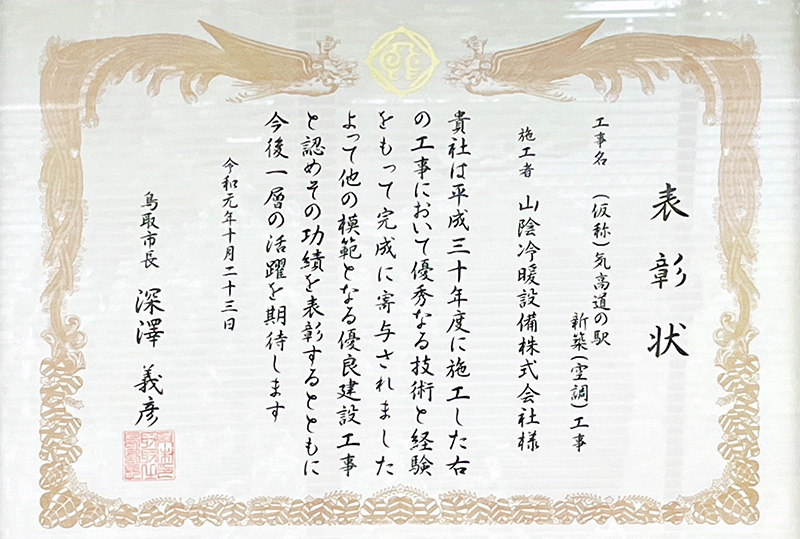 表彰状
工事名 (仮称)気高道の駅
新築(空調)工事
施工者 山陰冷暖設備株式会社様
貴社は平成三十年度に施工した右
の工事において優秀なる技術と経験
をもって完成に寄与されました
よって他の模範となる優良建設工事
と認めその功績を表彰するとともに
今後一層の活躍を期待します
令和元年十月二十三日
鳥取市長 深澤 義彦